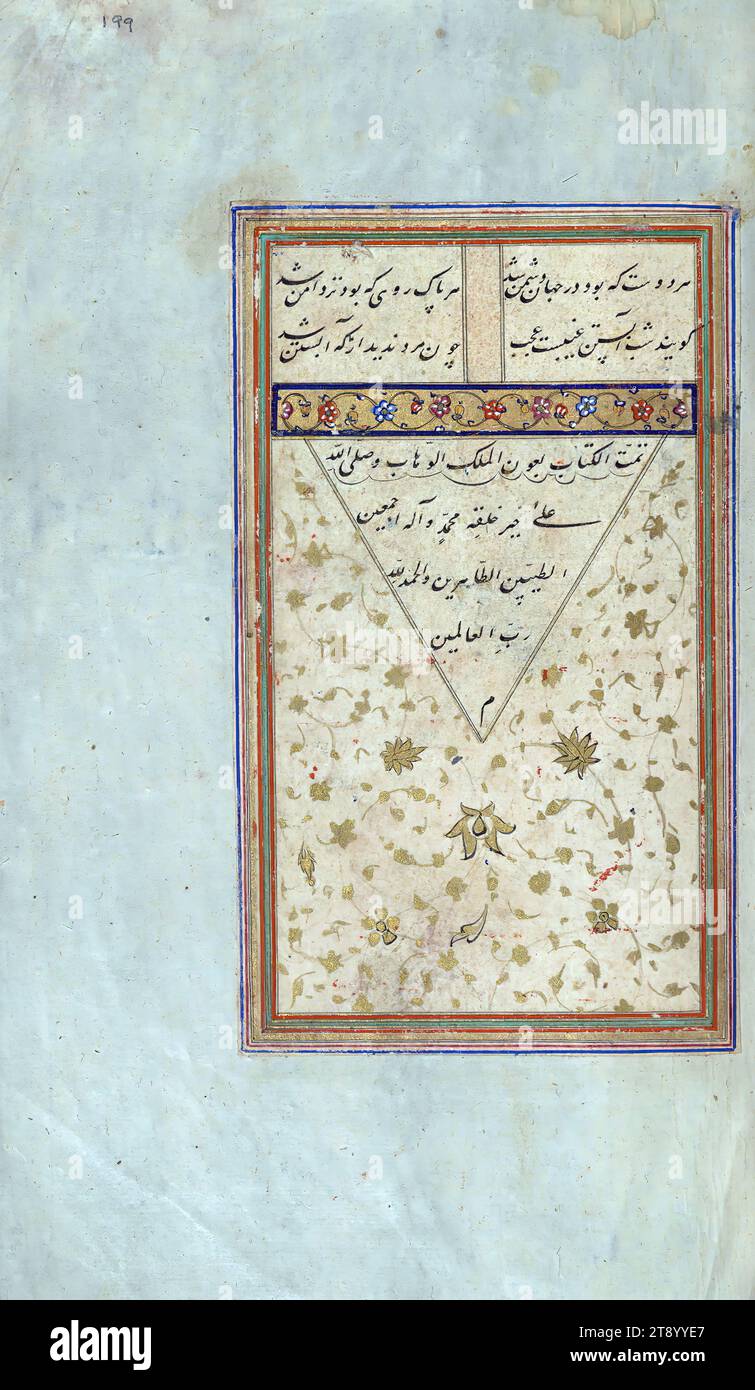 199
هر دوست که بود در جهان دشمن شد هر پاک روی که بود تر دامن شد
گویند شب آبستن غیبست عجب چون مرد ندید از که آبستن شد
تمّت الکتاب بعون الملک الوّهاب وصلی الله
علی خیر خلقه محمّدٍ وآله اجمعین
الطیّبین الطّاهرین والحمد للّه
ربّ العالمین
م
alamy
alamy
alamy
alamy
Image ID: 2T8YYE7
www.alamy.com